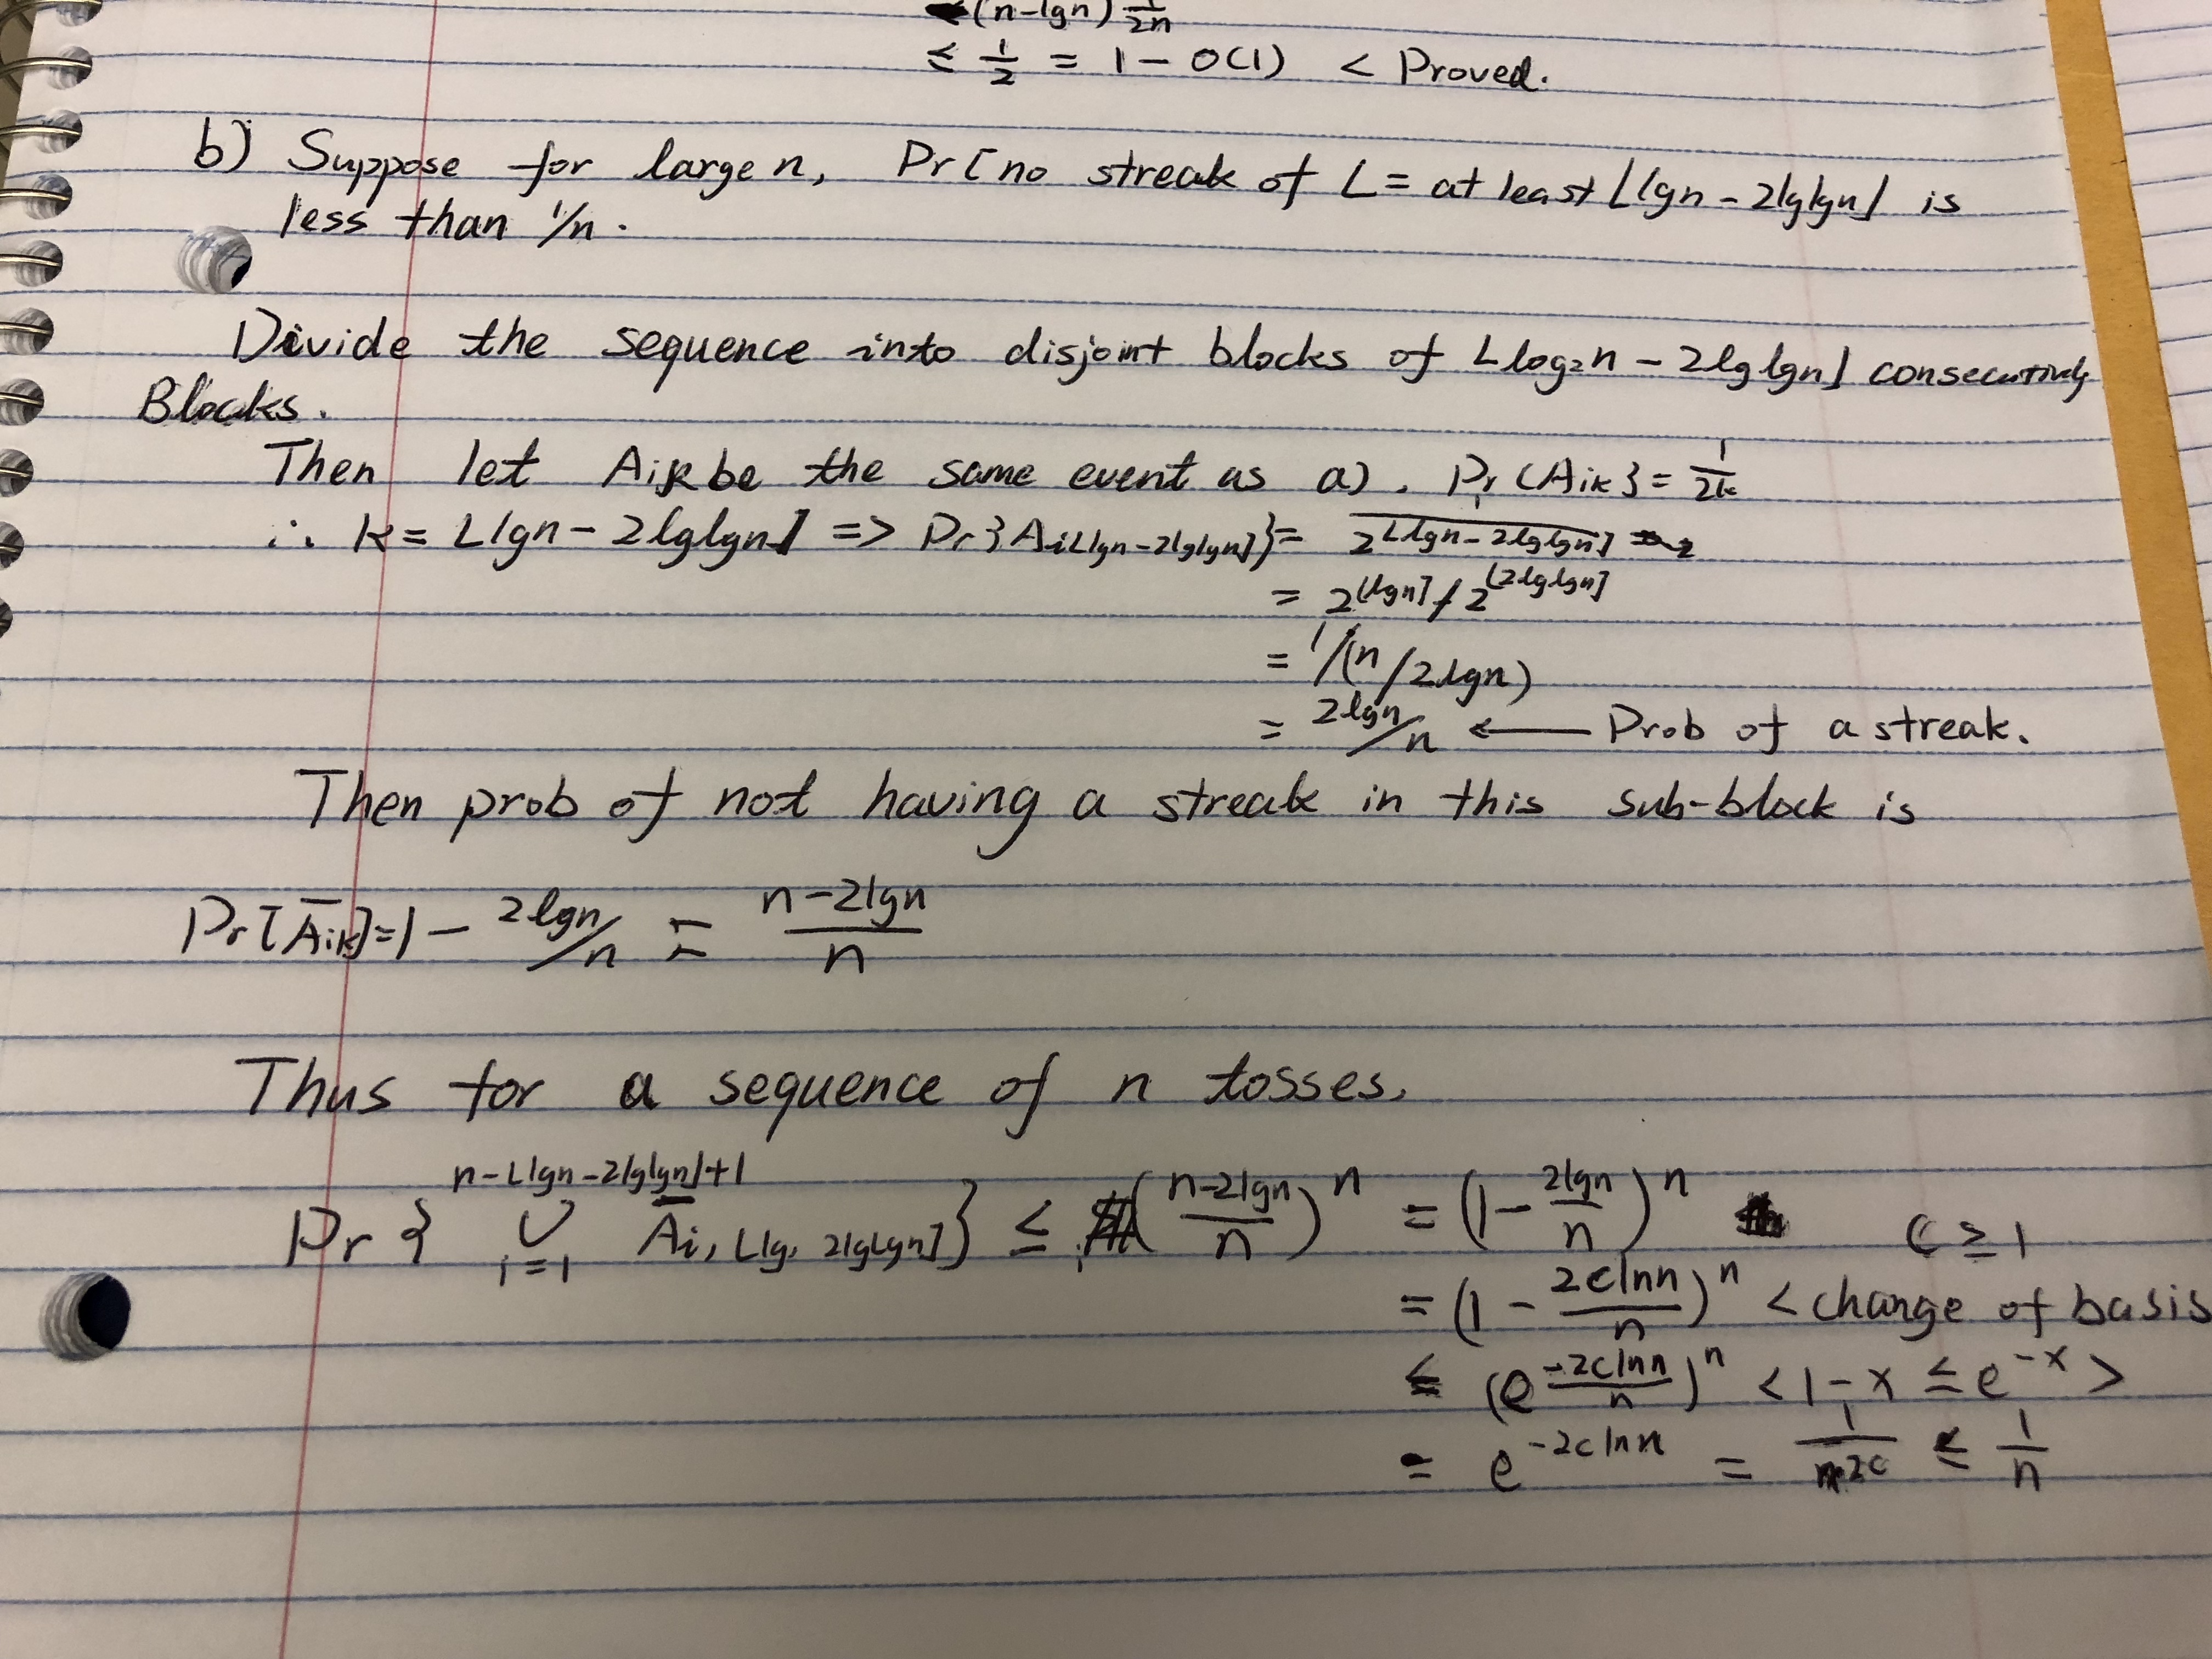 (n-lgn) 1/2n
≤ 1/2 = 1 - O(1) < Proved.
b) Suppose for large n, Pr[no streak of L = at least ⌊lgn - 2lglgn⌋ is
less than 1/n.
Divide the sequence into disjoint blocks of ⌊log₂n - 2lglgn⌋ consecutively
Blocks.
Then let Aik be the same event as a). Pr{Aik} = 1/2^k
∴ k = ⌊lgn - 2lglgn⌋ => Pr{Ai⌊lgn-2lglgn⌋} = 1/2^⌊lgn-2lglgn⌋
= 2^⌊lgn⌋ / 2^⌊2lglgn⌋
= 1/(n/2lgn)
= 2lgn/n ← Prob of a streak.
Then prob of not having a streak in this sub-block is
Pr[A̅ik] = 1 - 2lgn/n = (n-2lgn)/n
Thus for a sequence of n tosses,
n-⌊lgn-2lglgn⌋+1
Pr{ ∪ A̅i,⌊lg, 2lglgn⌋} ≤ ((n-2lgn)/n)^n = (1 - 2lgn/n)^n C ≥ 1
i=1
= (1 - 2clnn/n)^n < change of basis
≤ (e^(-2clnn/n))^n < 1-x ≤ e^-x >
= e^(-2clnn) = 1/n^2c ≤ 1/n